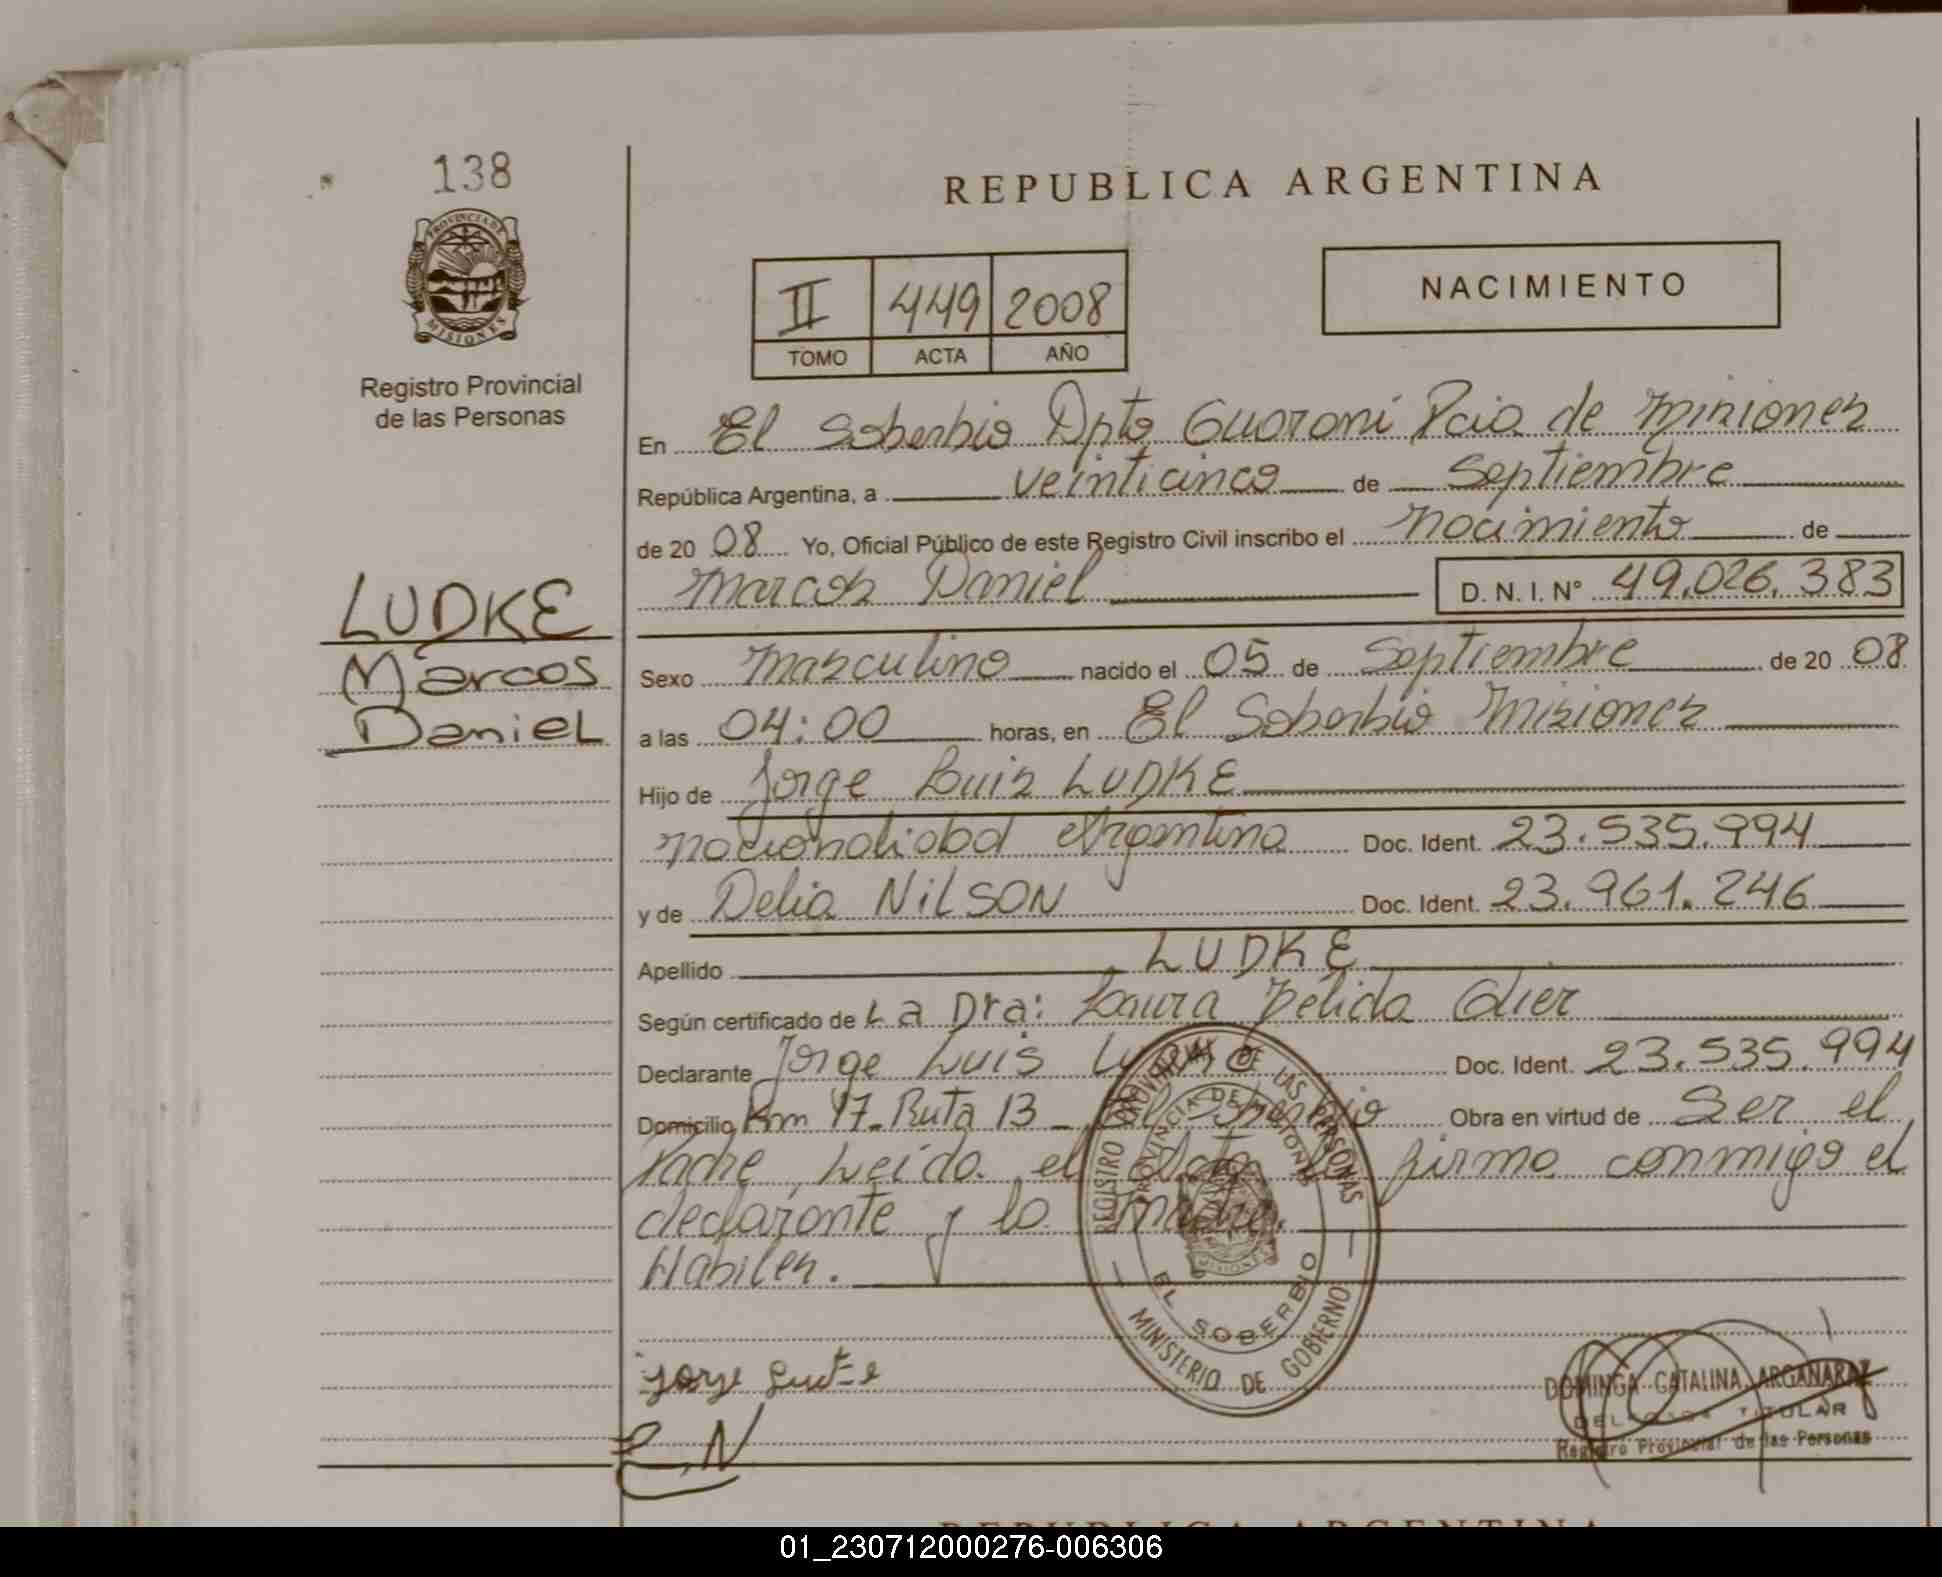 138
PROVINCIA DE
MISIONES
Registro Provincial
de las Personas
LUDKE
Marcos
Daniel
REPUBLICA ARGENTINA
II 449 2008
TOMO ACTA AÑO
NACIMIENTO
En El Soberbio Dpto Guaraní Pcia de Misiones
República Argentina, a veinticinco de Septiembre
de 2008 Yo, Oficial Público de este Registro Civil inscribo el nacimiento de
Marcos Daniel D. N. I. Nº 49.026.383
Sexo masculino nacido el 05 de Septiembre de 2008
a las 04:00 horas, en El Soberbio Misiones
Hijo de Jorge Luis LUDKE
nacionalidad Argentina Doc. Ident. 23.535.994
y de Delia NiLSON Doc. Ident. 23.961.246
Apellido LUDKE
Según certificado de La Dra: Laura
Declarante Jorge Luis Ludke Doc. Ident. 23.535.994
Domicilio Km 17 - Ruta 13 - El Soberbio Obra en virtud de Ser el
Padre, Leída el Acta firma conmigo el
declarante y la madre.
Habiles.
REGISTRO PROVINCIAL DE LAS PERSONAS
PROVINCIA DE MISIONES
MISIONES
EL SOBERBIO
MINISTERIO DE GOBIERNO
Jorge Ludke
DOMINGA CATALINA ARGAÑARAZ
DELEGADA TITULAR
Registro Provincial de las Personas
REPUBLICA ARGENTINA
01_230712000276-006306